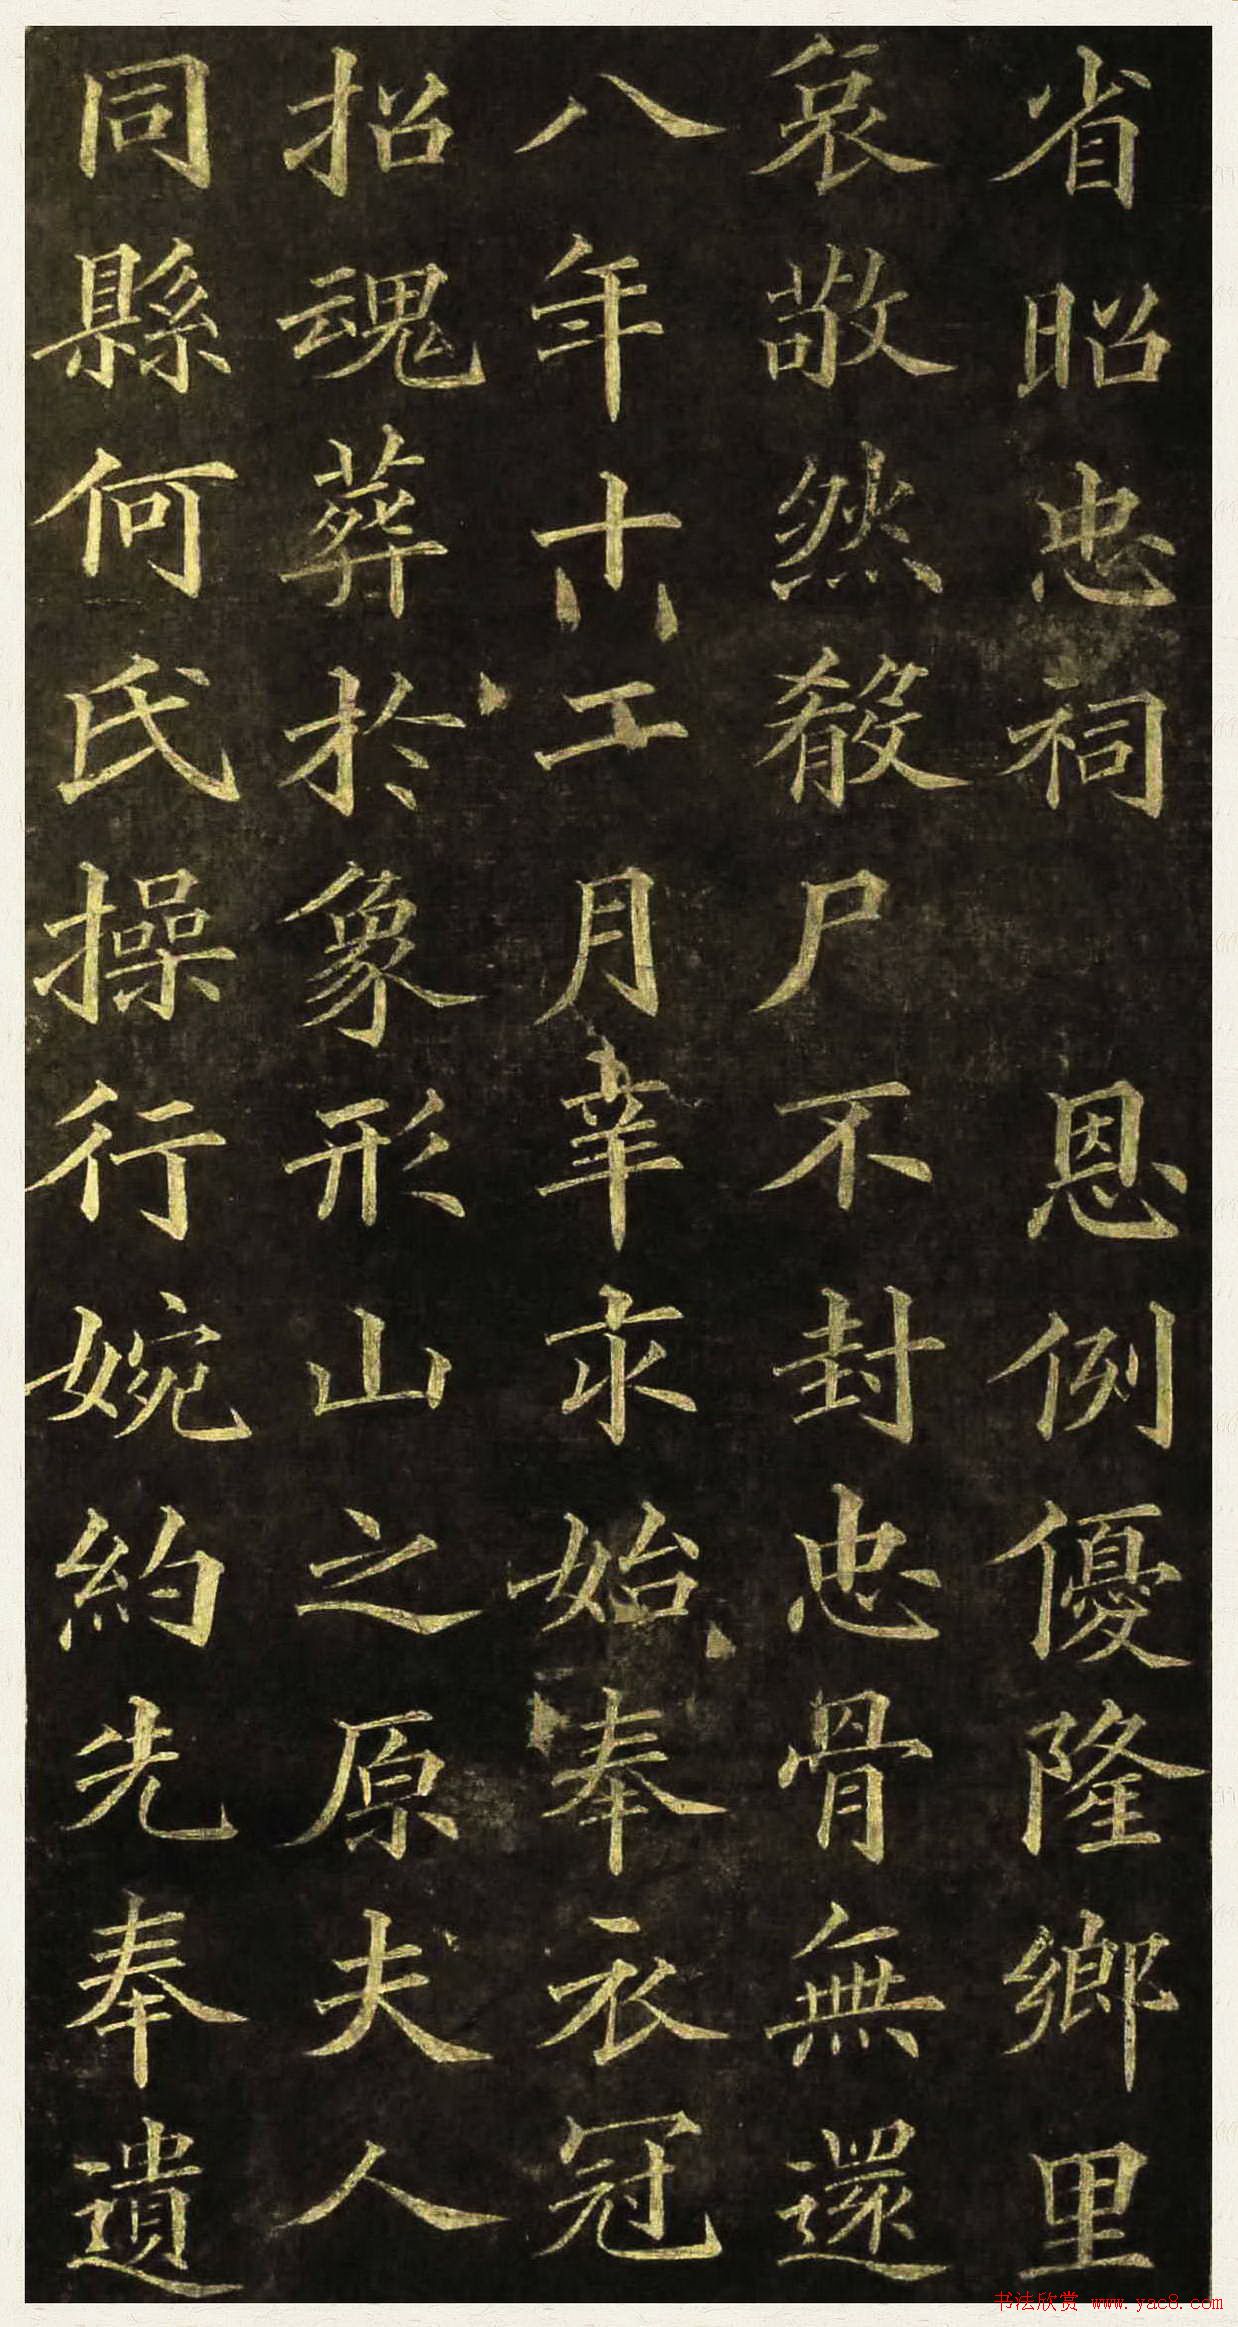 省昭忠祠 恩例優隆鄉里
哀敬然殽尸不封忠骨無還
八年十六工月幸求始奉衣冠
招魂葬於象形山之原夫人
同縣何氏操行婉約先奉遺
书法欣赏 www.yac8.com